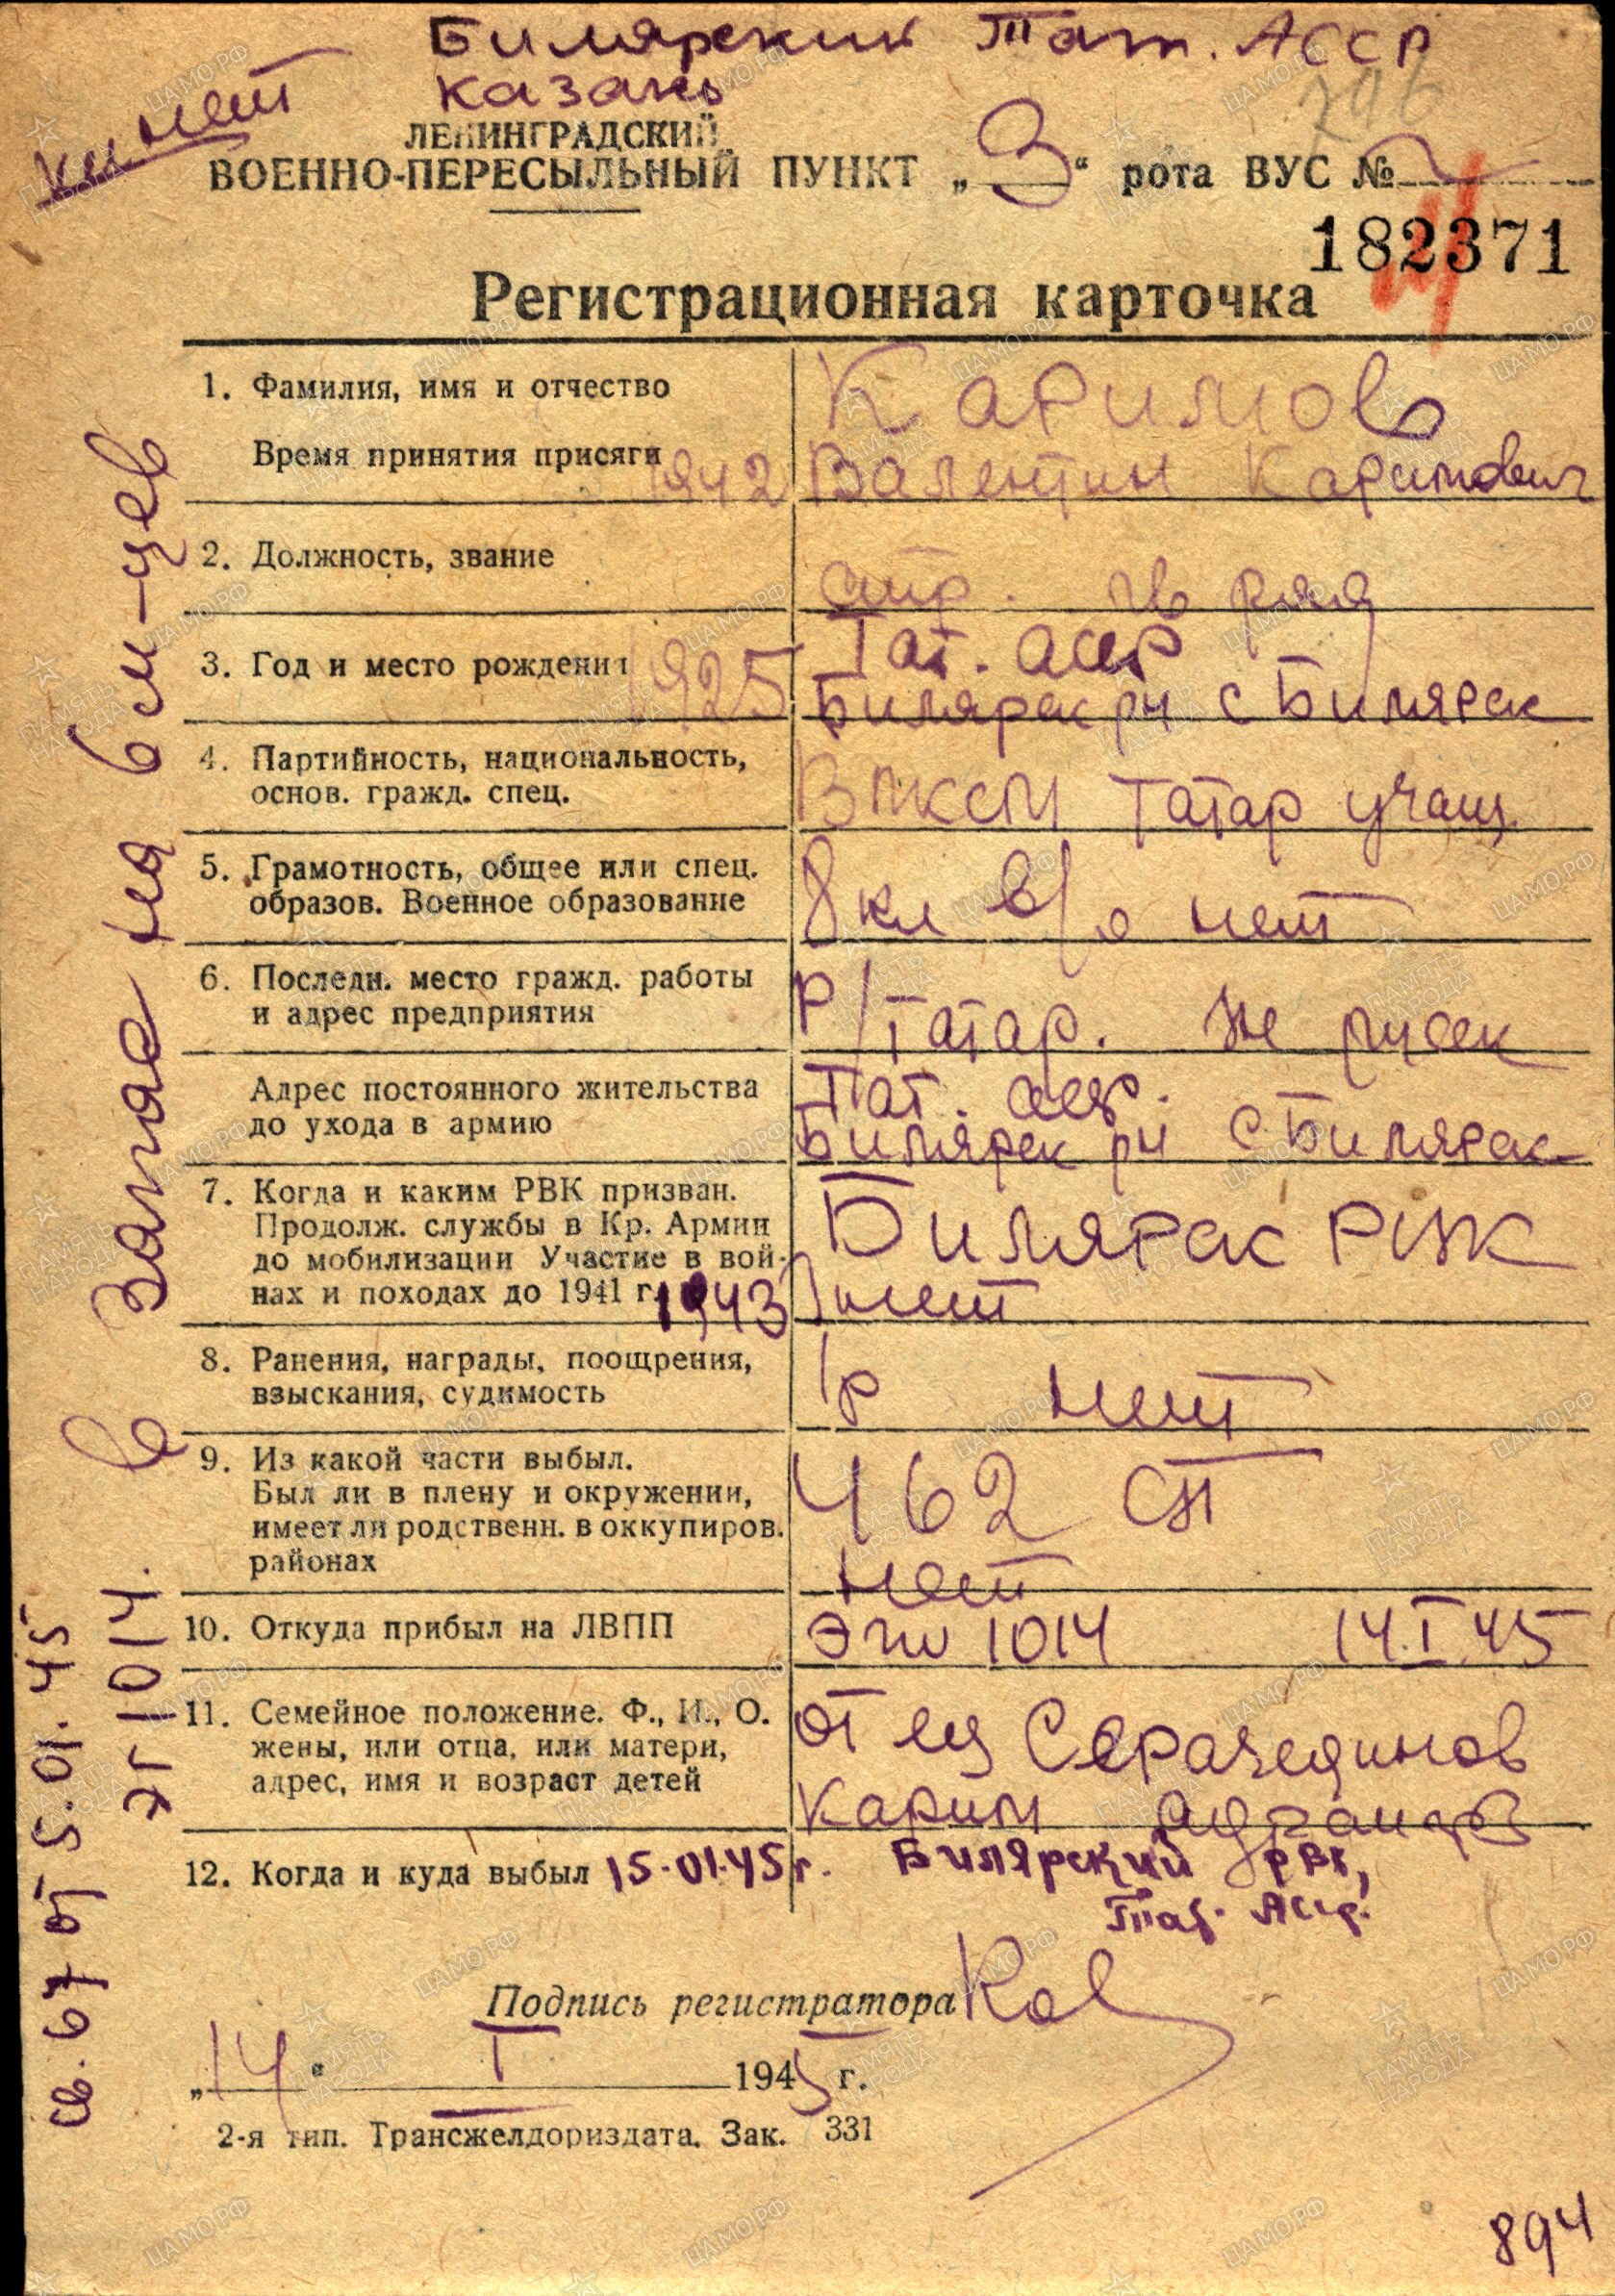 Билярский Тат. АССР
Казань
ки нет
ЛЕНИНГРАДСКИЙ
ВОЕННО-ПЕРЕСЫЛЬНЫЙ ПУНКТ „3“ рота ВУС №
182371
Регистрационная карточка
1. Фамилия, имя и отчество Каримов
Время принятия присяги 1942 Валентин Каримович
2. Должность, звание стр. гв ряд
3. Год и место рождения 1925 Тат. АССР
Билярск рн с Билярск
4. Партийность, национальность, основ. гражд. спец. ВЛКСМ татар учащ.
5. Грамотность, общее или спец. образов. Военное образование 8 кл в/о нет
6. Последн. место гражд. работы
и адрес предприятия Р/татар.
Адрес постоянного жительства Тат. АССР.
до ухода в армию Билярск рн с Билярск
7. Когда и каким РВК призван.
Продолж. службы в Кр. Армии Билярск РВК
до мобилизации Участие в вой-
нах и походах до 1941 г. 1943 нет
8. Ранения, награды, поощрения,
взыскания, судимость 1р нет
9. Из какой части выбыл.
Был ли в плену и окружении, 462 СП
имеет ли родственн. в оккупиров.
районах нет
10. Откуда прибыл на ЛВПП 1014 14.I.45
11. Семейное положение. Ф., И., О. отец Серазединов
жены, или отца, или матери,
адрес, имя и возраст детей Карим
12. Когда и куда выбыл 15.01.45 г. Билярский РВК,
Тат. АССР.
Подпись регистратора
„14“ I 1945 г.
2-я тип. Трансжелдориздата. Зак. 331
894
в запас на 6 м-цев
св. 67 от 5.01.45
ЭГ 1014.
ЦАМО.РФ
ПАМЯТЬ
НАРОДА